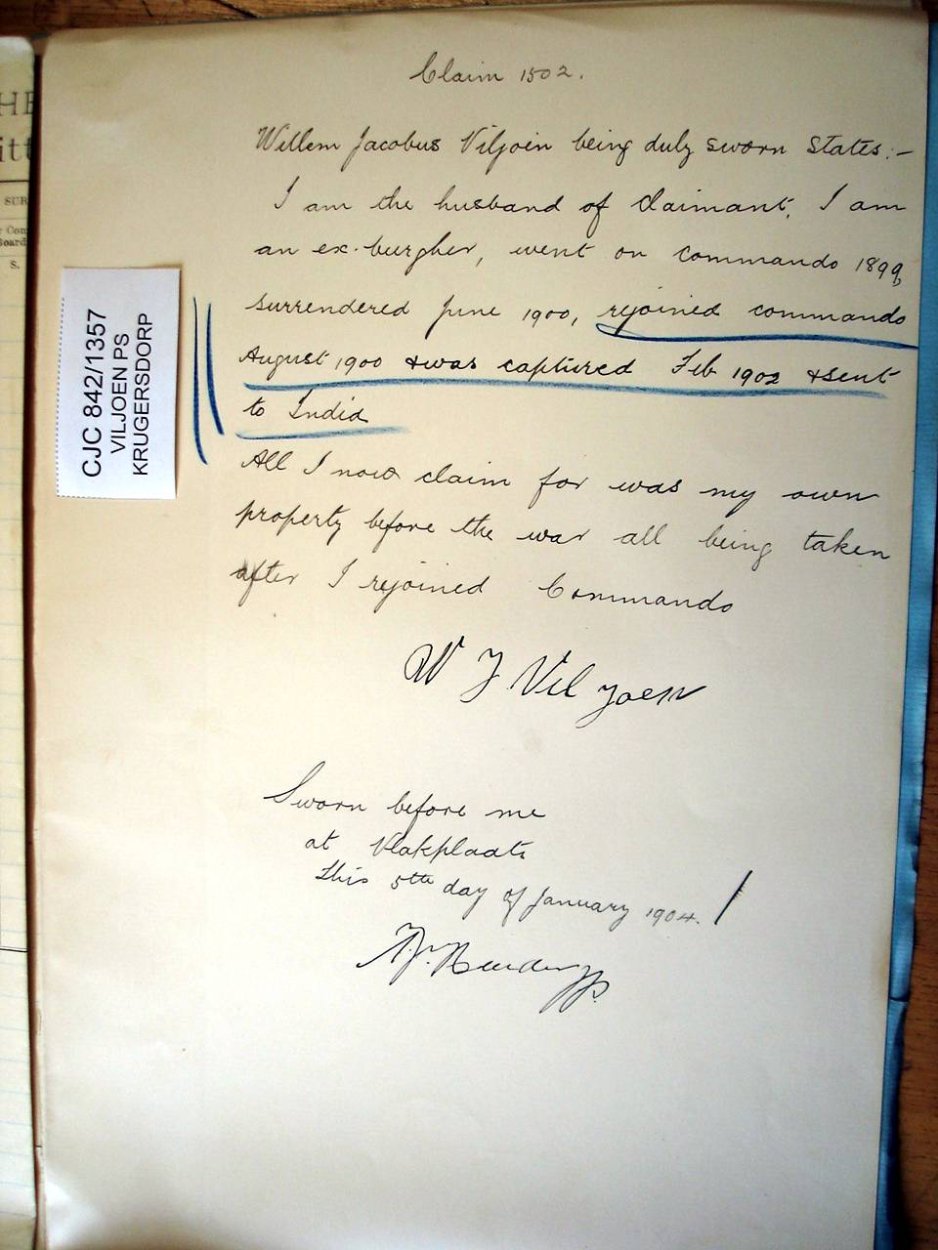 HE
itt
SUB
r Com
Board
S.
CJC 842/1357
VILJOEN PS
KRUGERSDORP
Claim 1502.
Willem Jacobus Viljoen being duly sworn States:-
I am the husband of Claimant. I am
an ex-burgher, went on Commando 1899,
surrendered June 1900, rejoined commando
August 1900 & was captured Feb 1902 & sent
to India
All I now claim for was my own
property before the war all being taken
after I rejoined Commando
W J Viljoen
Sworn before me
at Vlakplaats
this 5th day of January 1904.
JP.